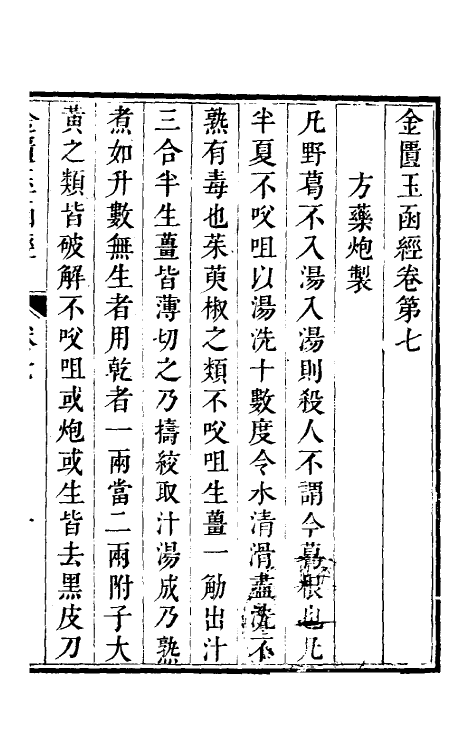 金匱玉函經卷第七
方藥炮製
凡野葛不入湯入湯則殺人不謂今葛根也凡
半夏不㕮咀以湯洗十數度令水清滑盡洗不
熟有毒也茱萸椒之類不㕮咀生薑一觔出汁
三合半生薑皆薄切之乃擣絞取汁湯成乃熟
煮如升數無生者用乾者一兩當二兩附子大
黃之類皆破解不㕮咀或炮或生皆去黑皮刀